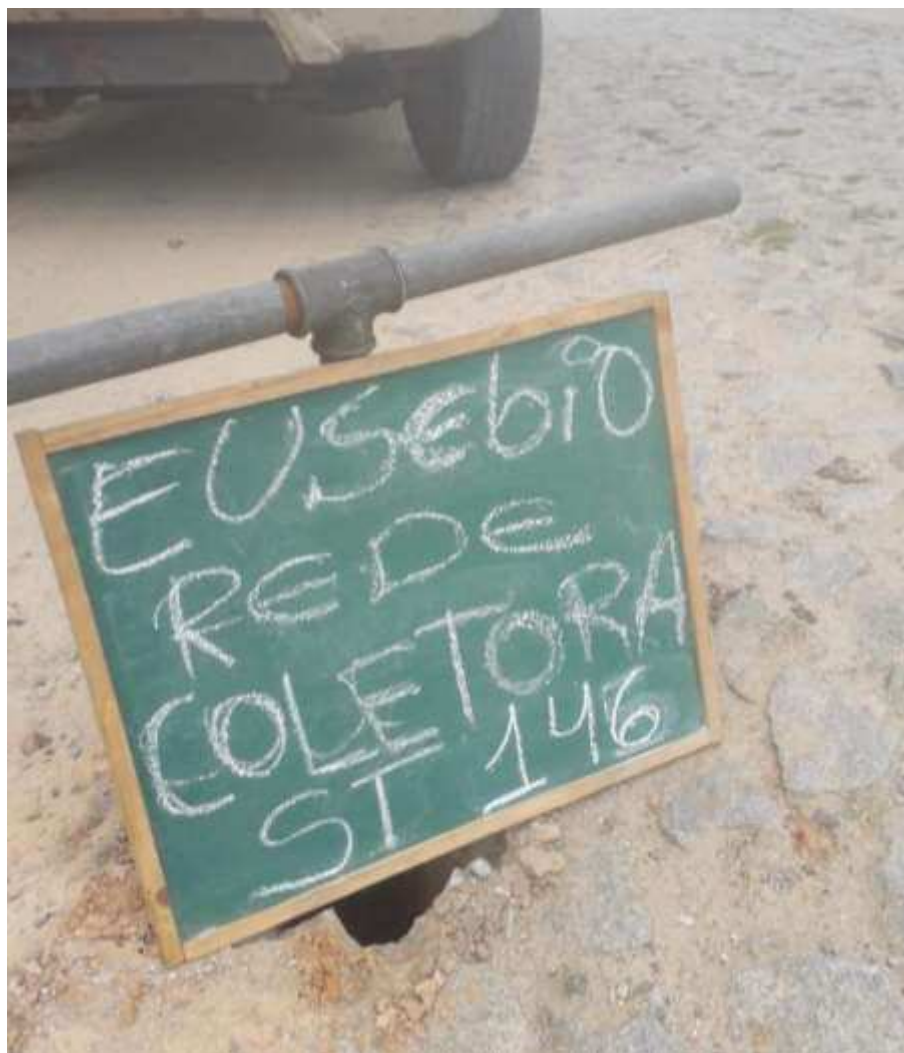 EUSEbiO
REDE
COLETORA
ST 146